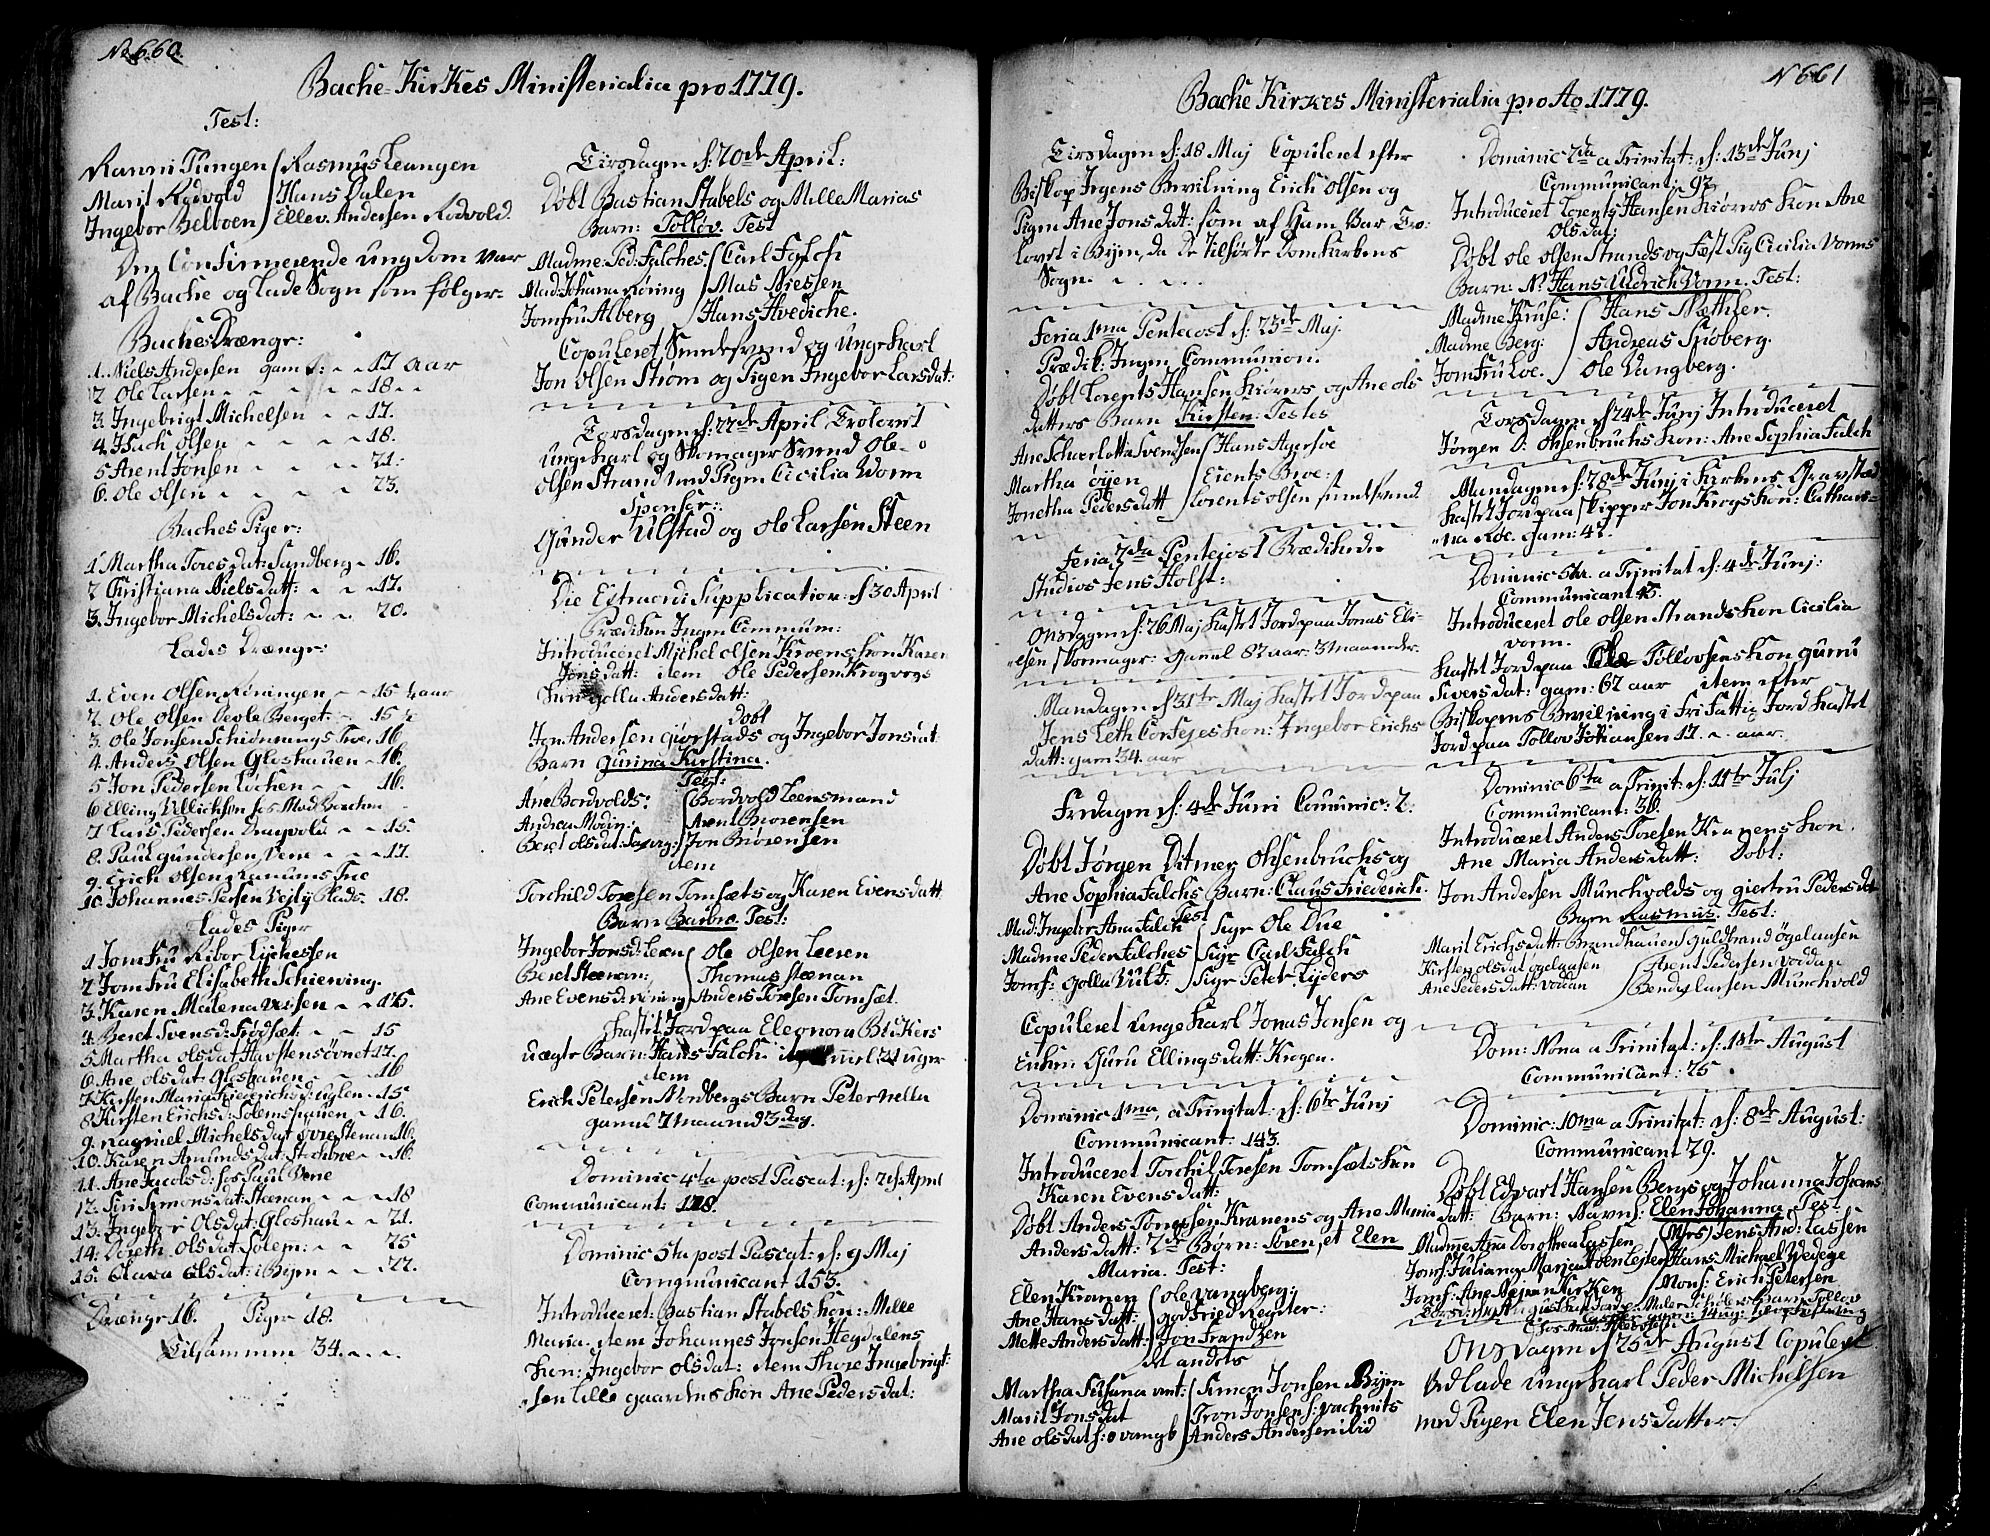 No 660.
Bache-Kirkes Ministerialia pro 1779.
Test:
Ranni Tungen / Rasmus Leangen
Marit Rødvold / Hans Dalen
Ingebor Belboen / Ellev. Andersen Rodvold.
Den Confirmerende Ungdom var
af Bache og Lade Sogn som følger
Baches Drænge:
1. Niels Andersen gaml: 17 aar
2 Ole Larsen 18
3 Ingebrigt Michelsen 17.
4. Isach Olsen 18.
5 Arent Jonsen 21:
6. Ole Olsen 23.
Baches Piger:
1 Martha Toresdat: Sandberg 16.
2 Christiana Nielsdatt: 17.
3. Ingebor Michelsdat: 20.
Lades Drænge:
1. Even Olsen Røningen 15 ½ aar
2. Ole Olsen Berget 15 ½
3. Ole Jonsen 16
4. Anders Olsen Gloshauen 16.
5 Jon Pedersen Løchen 16.
6 Elling hos Mad
7 Lars Pedersen Dragvold 15.
8. Paul Gundersen Vene 17.
9. Erich Olsen
10. Johannes Persen Plads. 18.
Lades Piger
1 Jomfru Ribor Lychessen
2 Jomfru Elisabeth Schiening.
3. Karen Malena 15.
4. Beret Svensd: Frodset: 15
5 Martha Olsdat Havstensøvnet 17.
6. Ane Olsdat Gloshauen 16
7. Kirsten Maria Friederichsd: Uglen 15
8 Kirsten Erichsd: Solemshauen 16.
9. Michelsdat øvre Stenan 16.
10. Karen Amundsdat: 16.
11. Ane Jacobsd: hos Paul Vene
12. Siri Simonsdat: Steenan 18
13. Ingebor Olsdat: Gloshau 21.
14: Doreth. Olsdat: Solem: 25
15. Clara Olsdat: i Byen 22.
Drænge 16. Piger 18.
Tilsammen 34.
Tirsdagen d: 20de April:
Døbt Bastian Stabels og Mille Marias
Barn: Tollov. Test
Madme: Ped: Falches / Carl Falch
Mad: Johana Røring / Mas Niessen
Jomfru Alberg / Hans Hvediche.
Copuleret Smedesvend og Ungekarl
Jon Olsen Strøm og Pigen Ingebor Larsdat:
Torsdagen d: 22de April Trolovet
Ungekarl og Skomager Svend Ole
Olsen Strand med Pigen Cicilia Vorm
Sponsor:
Gunder Ulstad og Ole Larsen Steen
Die Extraord: Supplication: d 30 April
Prædiken Ingen Commun:
Introduceret Michel Olsen Kroens Kon Karen
Jonsdatt: item Ole Pedersen Krogvogs
Andersdatt:
Døbt
Jon Andersen Giørstads og Ingebor Jonsdat
Barn Gurina Kirstina.
Test:
Ane Bordvolds: / Bordvold Leensmand
Andrea Modin: / Arent Biørensen
Beret Olsdat: / Jon Biørensen
Item
Torchild Toresen Tomsæts og Karen Evensdatt
Barn Barbro. Test:
Ingebor Jonsd: Leren / Ole Olsen Leeren
Beret Steenan: / Thomas Steenan
Ane Evensd: / Anders Toresen Tomset.
Hastet Jord paa Eleonora Bückers
uægte Barn: Hans Falch 21 uger
Item
Erich Petersen Barn Peternella
gamel 7 Maaned 3 dag.
Dominic 4ta post Pascat: d: 2 d: April
Communicant: 128.
Dominic 5ta post Pascat: d: 9 Maj
Communicant 153.
Introduceret: Bastian Stabels Kon: Mille
Maria. item Johannes Jonsen Hegdalens
Kon: Ingebor Olsdat: item Thore Ingebrigt-
sen Lille gaardens Kon Ane Pedersdat:
N 661
Bache Kirkes Ministerialia pro Ao 1779.
Tirsdagen d: 18 Maj Copuleret efter
Biskop Irgens Bevilning Erich Olsen og
Pigen Ane Jonsdatt: som af Ham Bar Tro-
lovet i Byen, da De tilhørte Domkirkens
Sogn.
Feria 1ma Pentecost d: 23de Maj.
Prædik: Ingen Communion.
Døbt Lorents Hansen Kiørens og Ane Ols
datters Barn Kirsten: Testes
Ane Scharlotta Svendsen / Hans Agersøe
Martha Øyen / Eients Broe:
Jonetha Pedersdatt / Lorents Olsen
Feria 2da Pentecost Prædikede
Studios Jens Holst:
Onsdagen d: 26 Maj Kastet Jord paa Jonas Eli-
esen Skomager: Gammel 82 aar: 3 Maaneder.
Mandagen d 31te Maj Kastet Jord paa
Jens Leth Kon: Ingebor Erichs
datt: gam 34. aar
Fredagen d: 4de Juni Comunic: 2.
Døbt Jørgen Ditmer Ohsenbruchs og
Ane Sophia Falchs Barn: Claus Friederich.
Test
Mad: Ingeter Ana Falch / Sigr Ole Due
Madme Peder Falches / Sigr Carl Falch
Jomf: Golla Vüld: / Sigr Peter Lyders
Copuleret Ungekarl Jonas Jonsen og
Enken Guru Ellingsdatt: Krogen.
Dominic 1ma, a Trinitat: d: 6te Junj
Communicant: 143.
Introduceret Torchil Toresen Tomsæts Kon
Karen Evensdatt:
Døbt Anders Toresen Kranens og Ane Maria
Andersdatt: 2de Børn: Soren, et Elen
Maria. Test:
Elen Kranen / Ole Vangberg;
Ane Hansdatt: / Godfried Regter:
Mette Andersdatt: / Jon Frandzen
det andets
Martha Susana / Simon Jonsen Byen
Marit Jonsdat / Tron Jonsen
Ane Olsdat / Anders Andersen ibid
Dominic 2da a Trinitat: d: 13de Junj
Communicant: 92
Introduceret Lorents Hansen Kiørens Kon Ane
Olsdat:
Døbt Ole Olsen Strands og Fæst Pig Cicilia Vorms
Barn: N. Hans Uldrich Vorm. Test:
Madme Kruse: / Hans Næthler.
Madme Berg: / Andreas Siøberg.
Jomfru Loe. / Ole Vangberg.
Torsdagen d 24de Junj Introduceret
Jørgen D: Ohsenbruchs Kon: Ane Sophia Falch
Mandagen d: 28de Junj i Kirkens Gravsted
Kastet Jord paa Skipper Jon Krogs Kon: Cathari-
na Roe. gam: 41.
Dominic 5te. a Trinitat d: 4de Junj:
Communicant 45.
Introduceret Ole Olsen Strands Kon Cicilia
Vorm.
Kastet Jord paa Ole Tollovsens Kon Guru
Siversdat: gam: 62 aar item efter
Biskopens Bevilning i Fri Fattig Jord Kastet
Jord paa Tollov Johansen 17. aar.
Dominic 6ta a Trinit: d: 11te Julj
Communicant: 36.
Introduceret Anders Toresen Kranens Kon.
Ane Maria Andersdatt: Døbt:
Jon Andersen Munchvolds og Giertru Pedersdat
Barn Rasmus. Test:
Marit Erichsdatt: Brandhauen / Guldbrand Øgelausen
Kirsten Olsdat Øgelausen / Arent Pedersen Voddan
Ane Pedersdatt: Voddan / Bendt Larsen Munchvold
Dom: Nona a Trinitat: d: 1ste August
Communicant: 25
Dominic: 10ma a Trinitat: d: 8de August:
Communicant 29.
Døbt Edvart Hansen Bergs og Johanna Johans
datt: Barn: Navns: Elen Johanna. Test:
Madme Ana Dorothea Lassen / Mrs Jens And: Lassen
Jomf: Juliana Maria / Hans Michael Wedege
Jomf: Ane / Mons: Erich Petersen
Onsdagen d 25de August Copuleret
Ved Lade Ungekarl Peder Michelsen
med Pigen Elen Jensdatter.